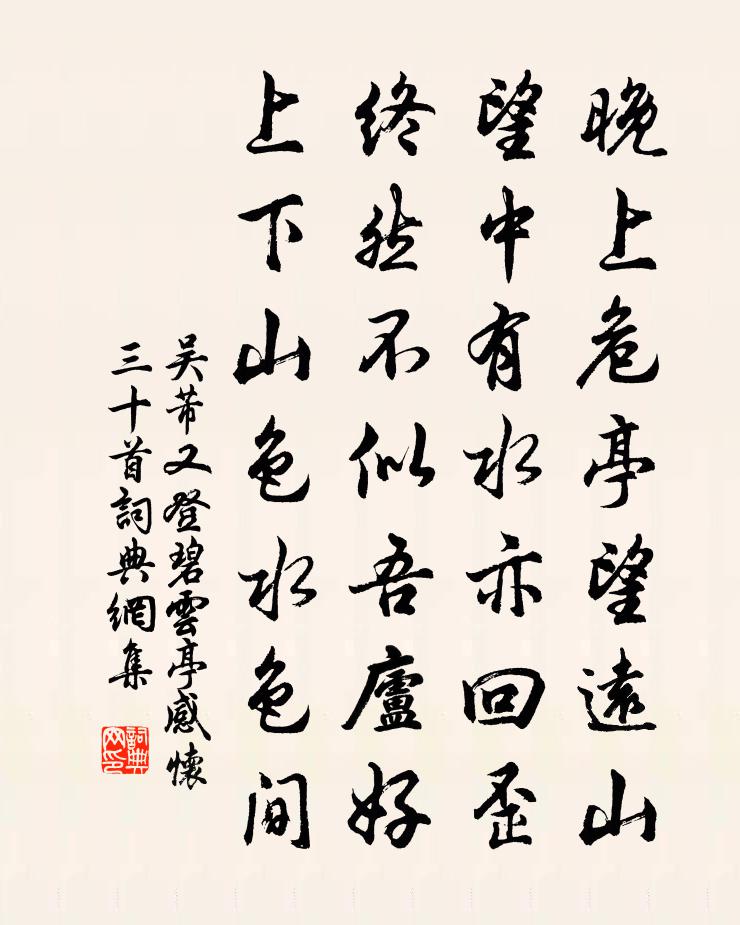 晚上危亭望遠山
望中有水亦回歪
終然不似吾廬好
上下山色水色间
吴芾又登碧雲亭感懷
三十首詞典網集
詞典网印